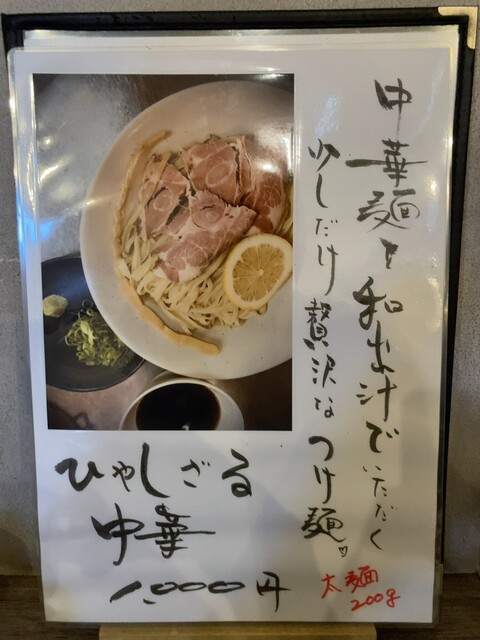 中華麺を和出汁でいただく
少しだけ贅沢なつけ麺。
ひやしざる
中華
1,000円
太麺
200g